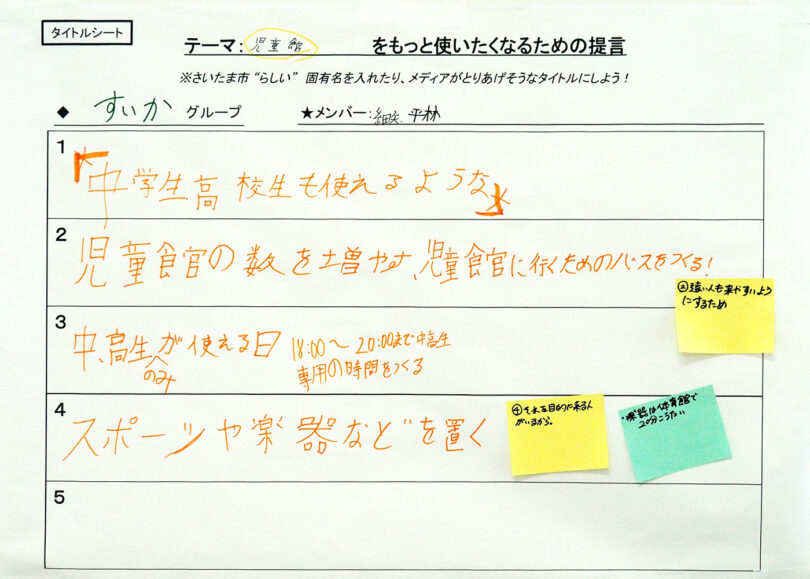 タイトルシート
テーマ:児童館 をもっと使いたくなるための提言
※さいたま市“らしい” 固有名を入れたり、メディアがとりあげそうなタイトルにしよう!
◆ すいか グループ ★メンバー: 平林
1
『中学生高校生も使えるような』
2
児童食官の数を増やす、児童食官に行くためのバスをつくる!
②遠い人も来やすいよう
にするため
3
中、高生が使える日 18:00〜20:00まで中高生
のみ 専用の時間をつくる
4
スポーツや楽器などを置く
④それを目的に来る人
がいるから。
・楽器は体育館で
20分こうたい
5